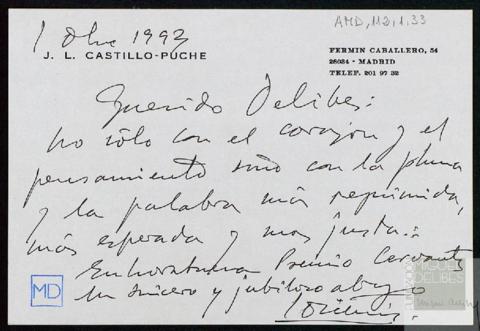 AMD, 112, 1, 33
1 Dbre 1993
J. L. CASTILLO-PUCHE
FERMIN CABALLERO, 54
28034 - MADRID
TELEF. 201 97 32
Querido Delibes:
no sólo con el corazón y el
pensamiento sino con la pluma
y la palabra más reprimida,
más esperada y mas justa:
Enhorabuena Premio Cervantes
Un sincero y jubiloso abrazo
MD
FUNDACIÓN
MIGUEL
DELIBES